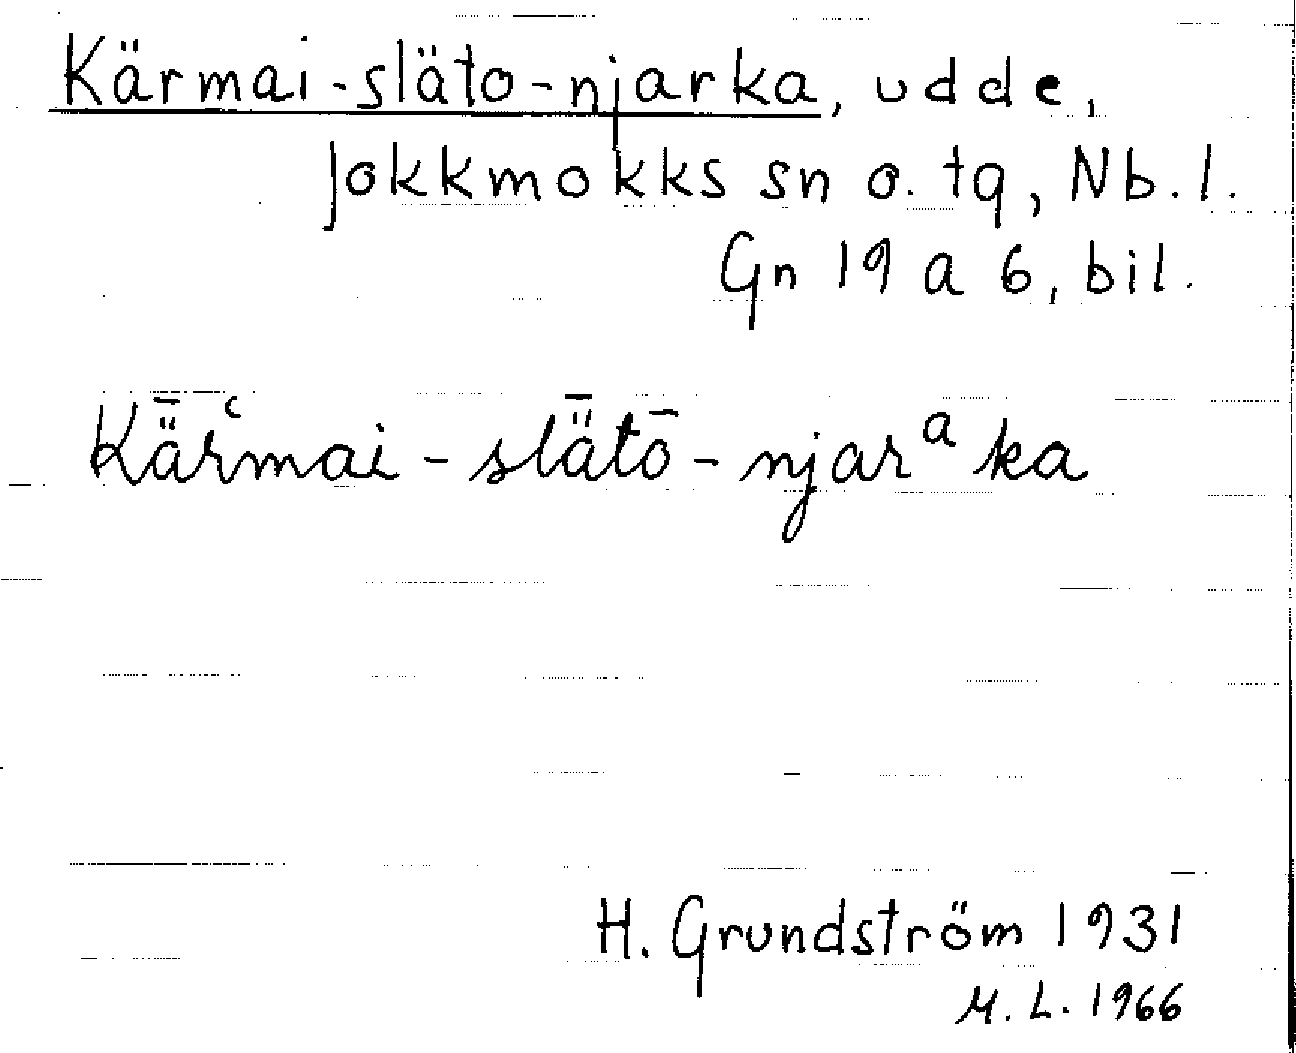 Kärmai-släto-njarka, udde,
Jokkmokks sn o. tg, Nb. l.
Gn 19 a 6, bil.
Kǟrʿmai - slǟtō - njarᵃka
H. Grundström 1931
M. L. 1966